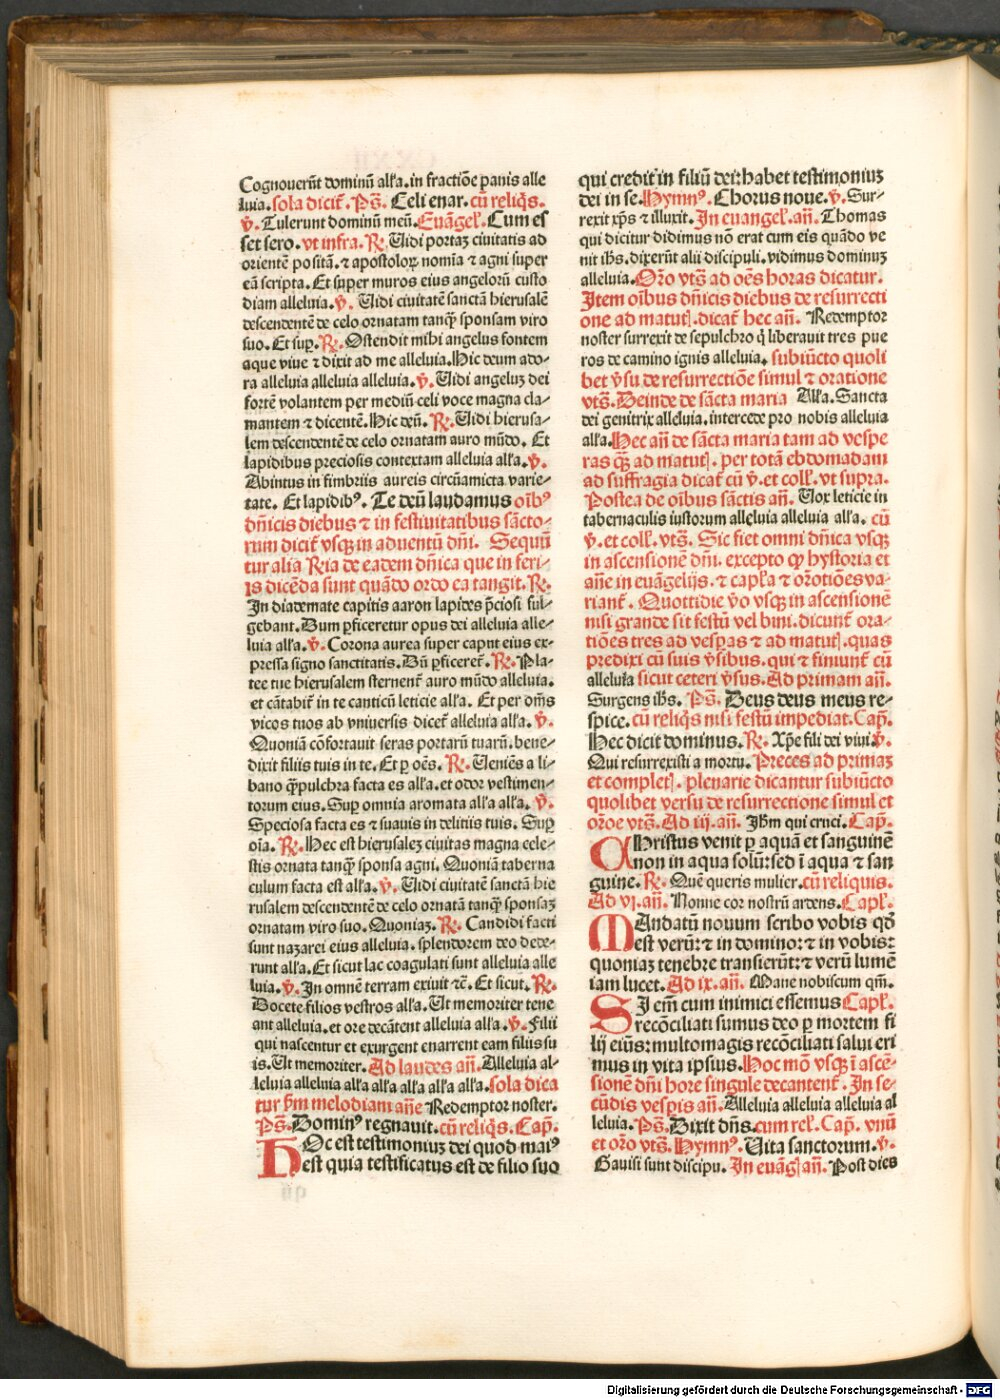 Cognouerũt dominũ alĺa. in fractiõe panis alle
luia. sola dicit̃. Ps̃. Celi enar. cũ reliq̃s.
v̾. Tulerunt dominũ meũ. Euãgel̃. Cum es
set sero. vt infra. R̷. Uidi portaꝫ ciuitatis ad
orientẽ positã. ⁊ apostoloꝝ nomĩa ⁊ agni super
eã scripta. Et super muros eius angelorũ custo
diam alleluia. v̾. Uidi ciuitatẽ sanctã hierusalẽ
descendentẽ de celo ornatam tanq̃ sponsam viro
suo. Et sup̱. R̷. Ostendit mihi angelus fontem
aque viue ⁊ dixit ad me alleluia. Hic deum ado-
ra alleluia alleluia alleluia. v̾. Uidi angeluꝫ dei
fortẽ volantem per mediũ celi voce magna cla-
mantem ⁊ dicentẽ. Hic deũ. R̷. Uidi hierusa-
lem descendentẽ de celo ornatam auro mũdo. Et
lapidibus preciosis contextam alleluia alĺa. v̾.
Abintus in fimbriis aureis circũamicta varie-
tate. Et lapidibꝰ. Te deũ laudamus oĩbꝰ
dñicis diebus ⁊ in festiuitatibus sãcto-
rum dicit̃ vsq̃ in aduentũ dñi. Sequũ
tur alia Rria de eadem dñica que in feri-
is dicẽda sunt quãdo ordo ea tangit. R̷.
In diademate capitis aaron lapides p̃ciosi ful-
gebant. Dum p̱ficeretur opus dei alleluia alle-
luia alĺa. v̾. Corona aurea super caput eius ex-
pressa signo sanctitatis. Dũ p̱ficeret̃. R̷. Pla-
tee tue hierusalem sternent̃ auro mũdo alleluia.
et cãtabit̃ in te canticũ leticie alĺa. Et per om̃s
vicos tuos ab vniuersis dicet̃ alleluia alĺa. v̾.
Quoniã cõfortauit seras portarũ tuarũ. bene-
dixit filiis tuis in te. Et p̱ oẽs. R̷. Ueniẽs a li-
bano q̃pulchra facta es alĺa. et odor vestimen-
torum eius. Sup̱ omnia aromata alĺa alĺa. v̾.
Speciosa facta es ⁊ suauis in delitiis tuis. Sup̱
oĩa. R̷. Hec est hierusaleꝫ ciuitas magna cele-
stis ornata tanq̃ sponsa agni. Quoniã taberna
culum facta est alĺa. v̾. Uidi ciuitatẽ sanctã hie
rusalem descendentẽ de celo ornatã tanq̃ sponsaꝫ
ornatam viro suo. Quoniaꝫ. R̷. Candidi facti
sunt nazarei eius alleluia. splendorem deo dede-
runt alĺa. Et sicut lac coagulati sunt alleluia alle
luia. v̾. In omnẽ terram exiuit ⁊c̃. Et sicut. R̷.
Docete filios vestros alĺa. Ut memoriter tene
ant alleluia. et ore decãtent alleluia alĺa. v̾. Filii
qui nascentur et exurgent enarrent eam filiis su
is. Ut memoriter. Ad laudes añ. Alleluia al-
leluia alleluia alĺa alĺa alĺa alĺa alĺa. sola dica
tur s̃m melodiam añe Redemptor noster.
Ps̃. Dominꝰ regnauit. cũ reliq̃s. Cap̃.
Hoc est testimoniuꝫ dei quod maiꝰ
est quia testificatus est de filio suo
qui credit in filiũ dei: habet testimoniuꝫ
dei in se. Hymnꝰ. Chorus noue. v̾. Sur-
rexit xp̃s ⁊ illuxit. In euangel̃. añ. Thomas
qui dicitur didimus nõ erat cum eis quãdo ve
nit ih̃s. dixerũt alii discipuli. vidimus dominuꝫ
alleluia. Or̃o vts̃. ad oẽs horas dicatur.
Item oĩbus dñicis diebus de resurrecti
one ad matuṫ. dicat̃ hec añ. Redemptor
noster surrexit de sepulchro q̃ liberauit tres pue
ros de camino ignis alleluia. subiũcto quoli
bet v̾su de resurrectiõe simul ⁊ oratione
vts̃. Deinde de sãcta maria Alĺa. Sancta
dei genitrix alleluia. intercede pro nobis alleluia
alĺa. Hec añ de sãcta maria tam ad vespe
ras q̃ ad matuṫ. per totã ebdomadam
ad suffragia dicat̃ cũ v̾. et coll̃. vt supra.
Postea de oĩbus sãctis añ. Uox leticie in
tabernaculis iustorum alleluia alleluia alĺa. cũ
v̾. et coll̃. vts̃. Sic fiet omni dñica vsq̃
in ascensionẽ dñi. excepto ꝙ hystoria et
añe in euãgelijs. ⁊ capĺa ⁊ or̃otiões va-
riant̃. Quottidie v̾o vsq̃ in ascensionẽ
nisi grande sit festũ vel bini. dicunt̃ ora-
tiões tres ad vesp̱as ⁊ ad matuṫ. quas
predixi cũ suis v̾sibus. qui ⁊ finiunt̃ cũ
alleluia sicut ceteri v̾sus. Ad primam añ.
Surgens ih̃s. Ps̃. Deus deus meus re-
spice. cũ reliq̃s nisi festũ impediat. Cap̃.
Hec dicit dominus. R̷. Xp̃e fili dei viui. v̾.
Qui resurrexisti a mortu. Preces ad primaꝫ
et compleṫ. plenarie dicantur subiũcto
quolibet versu de resurrectione simul et
or̃oe vts̃. Ad iij. añ. Ih̃m qui cruci. Cap̃.
Christus venit p̱ aquã et sanguinẽ
non in aqua solũ: sed ĩ aqua ⁊ san
guine. R̷. Quẽ queris mulier. cũ reliquis.
Ad vj. añ. Nonne cor nostrũ ardens. Capl̃.
Mandatũ nouum scribo vobis qd̃
est verũ: ⁊ in domino: ⁊ in vobis:
quoniaꝫ tenebre transierũt: ⁊ verũ lumẽ
iam lucet. Ad ix. añ. Mane nobiscum qm̃.
Si em̃ cum inimici essemus Capl̃.
recõciliati sumus deo p̱ mortem fi
lij eiũs: multomagis recõciliati salui eri
mus in vita ipsius. Hoc mõ vsq̃ ĩ ascẽ-
sionẽ dñi hore singule decantent̃. In se-
cũdis vesp̱is añ. Alleluia alleluia alleluia al
leluia. Ps̃. Dixit dñs. cum rel̃. Cap̃. vnũ
et or̃o vts̃. Hymnꝰ. Uita sanctorum. v̾.
Gauisi sunt discipu. In euãg̃ añ. Post dies
Digitalisierung gefördert durch die Deutsche Forschungsgemeinschaft - DFG